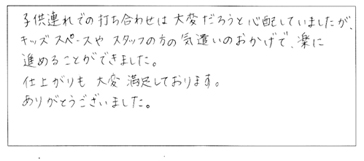 子供連れでの打ち合わせは大変だろうと心配していましたが、
キッズスペースやスタッフの方の気遣いのおかげで、楽に
進めることができました。
仕上がりも大変満足しております。
ありがとうございました。